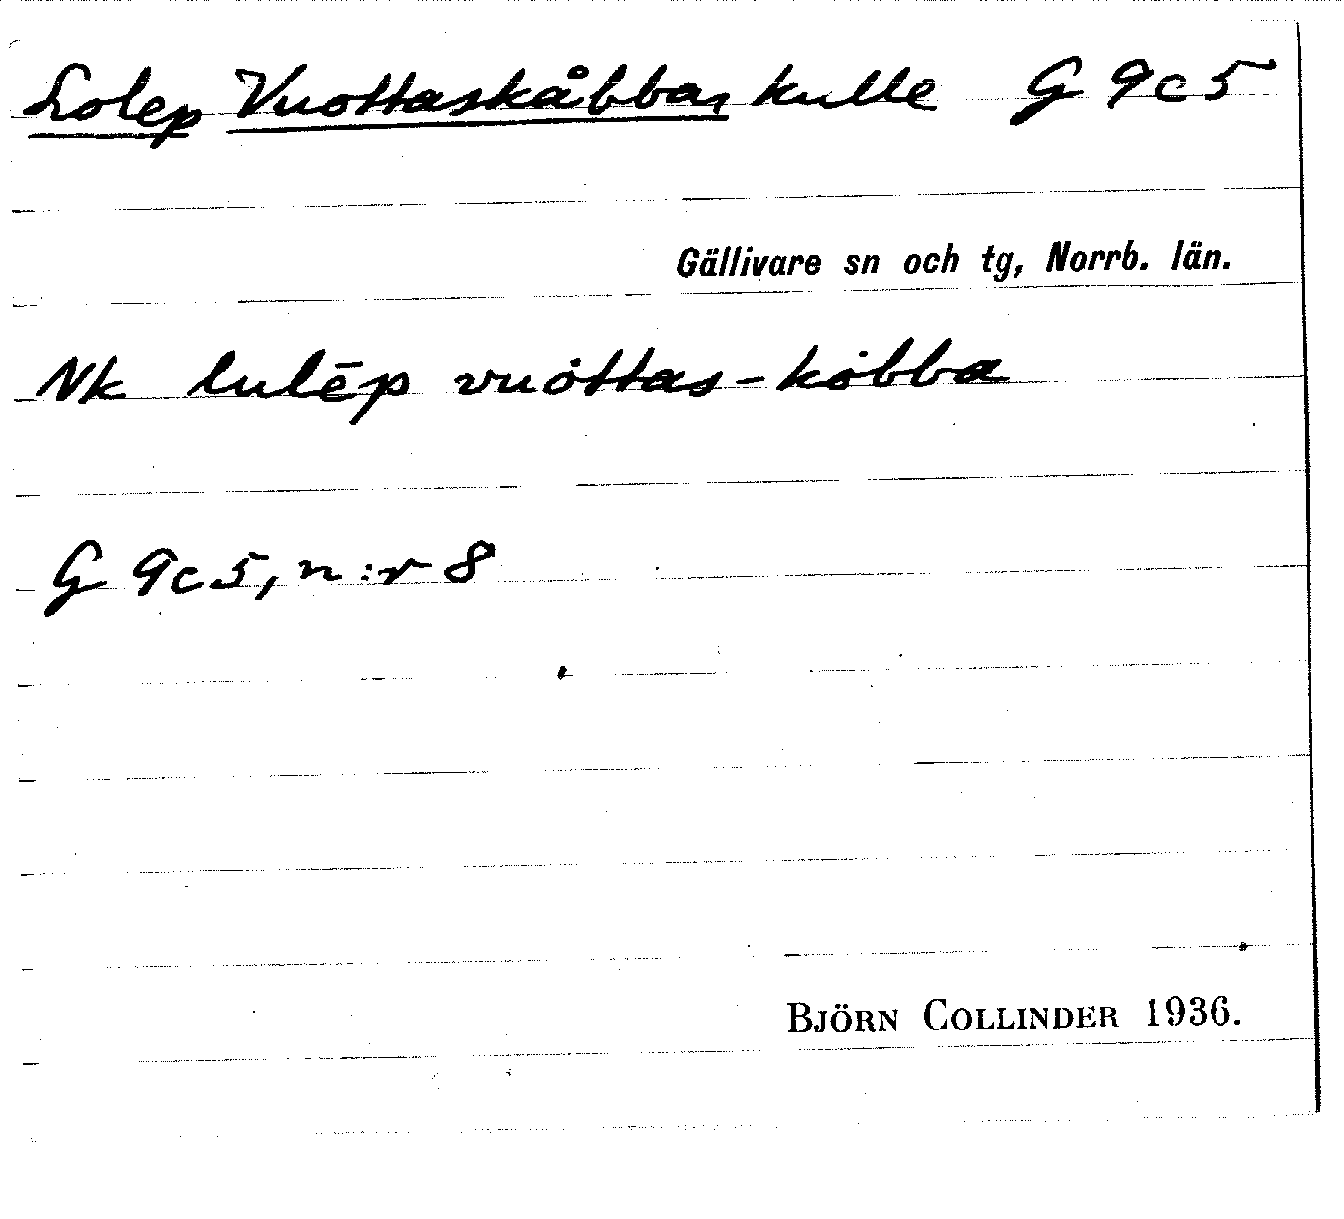 Lolep Vuottaskåbba, kulle G 9c5
Gällivare sn och tg, Norrb. län.
Nk lulēp vuȯttas-kȯbba
G 9c5, n:r 8
BJÖRN COLLINDER 1936.